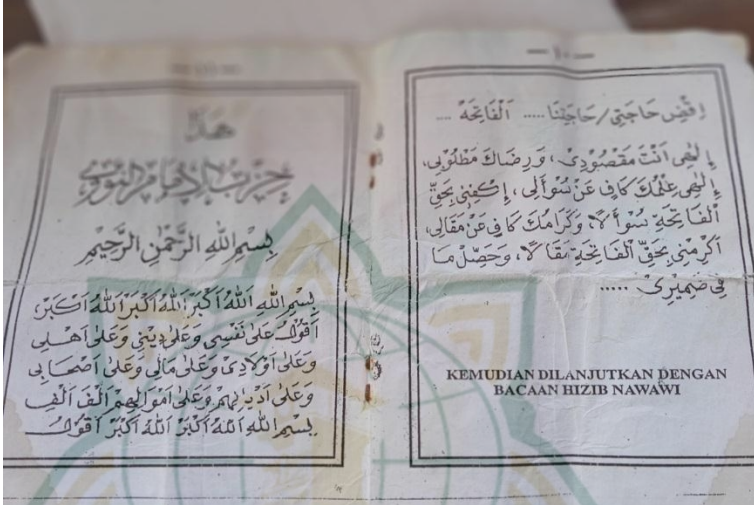 — ١٠ —
اِقْضِ حَاجَتِيْ/حَاجَتَنَا ..... اَلْفَاتِحَهْ ....
اِلٰهِى اَنْتَ مَقْصُوْدِىْ، وَرِضَاكَ مَطْلُوْبِى،
اِلٰهِى عِلْمُكَ كَافٍ عَنْ سُؤَالِى، اِكْفِنِى بِحَقِّ
الْفَاتِحَةِ سُؤَالًا، وَكَرَامُكَ كَافٍ عَنْ مَقَالِى،
اَكْرِمْنِى بِحَقِّ الْفَاتِحَةِ مَقَالًا، وَحَصِّلْ مَا
فِى ضَمِيْرِىْ .....
KEMUDIAN DILANJUTKAN DENGAN
BACAAN HIZIB NAWAWI
هٰذَا
حِزْبُ الْاِمَامِ النَّوَوِى
بِسْمِ اللهِ الرَّحْمٰنِ الرَّحِيْمِ
بِسْمِ اللهِ اَللهُ اَكْبَرُ اَللهُ اَكْبَرُ اَللهُ اَكْبَرُ
اَقُوْلُ عَلٰى نَفْسِى وَعَلٰى دِيْنِى وَعَلٰى اَهْلِى
وَعَلٰى اَوْلَادِىْ وَعَلٰى مَالِى وَعَلٰى اَصْحَابِى
وَعَلٰى اَدْيَانِهِمْ وَعَلٰى اَمْوَالِهِمْ اَلْفَ اَلْفِ
بِسْمِ اللهِ اَللهُ اَكْبَرُ اَللهُ اَكْبَرُ اَقُوْلُ